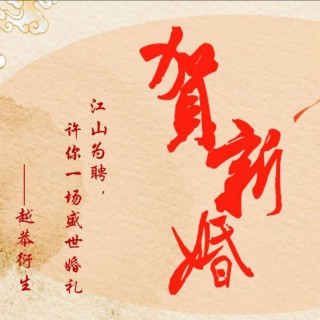 贺新婚
江山为聘，
许你一场盛世婚礼
——越恭衍生